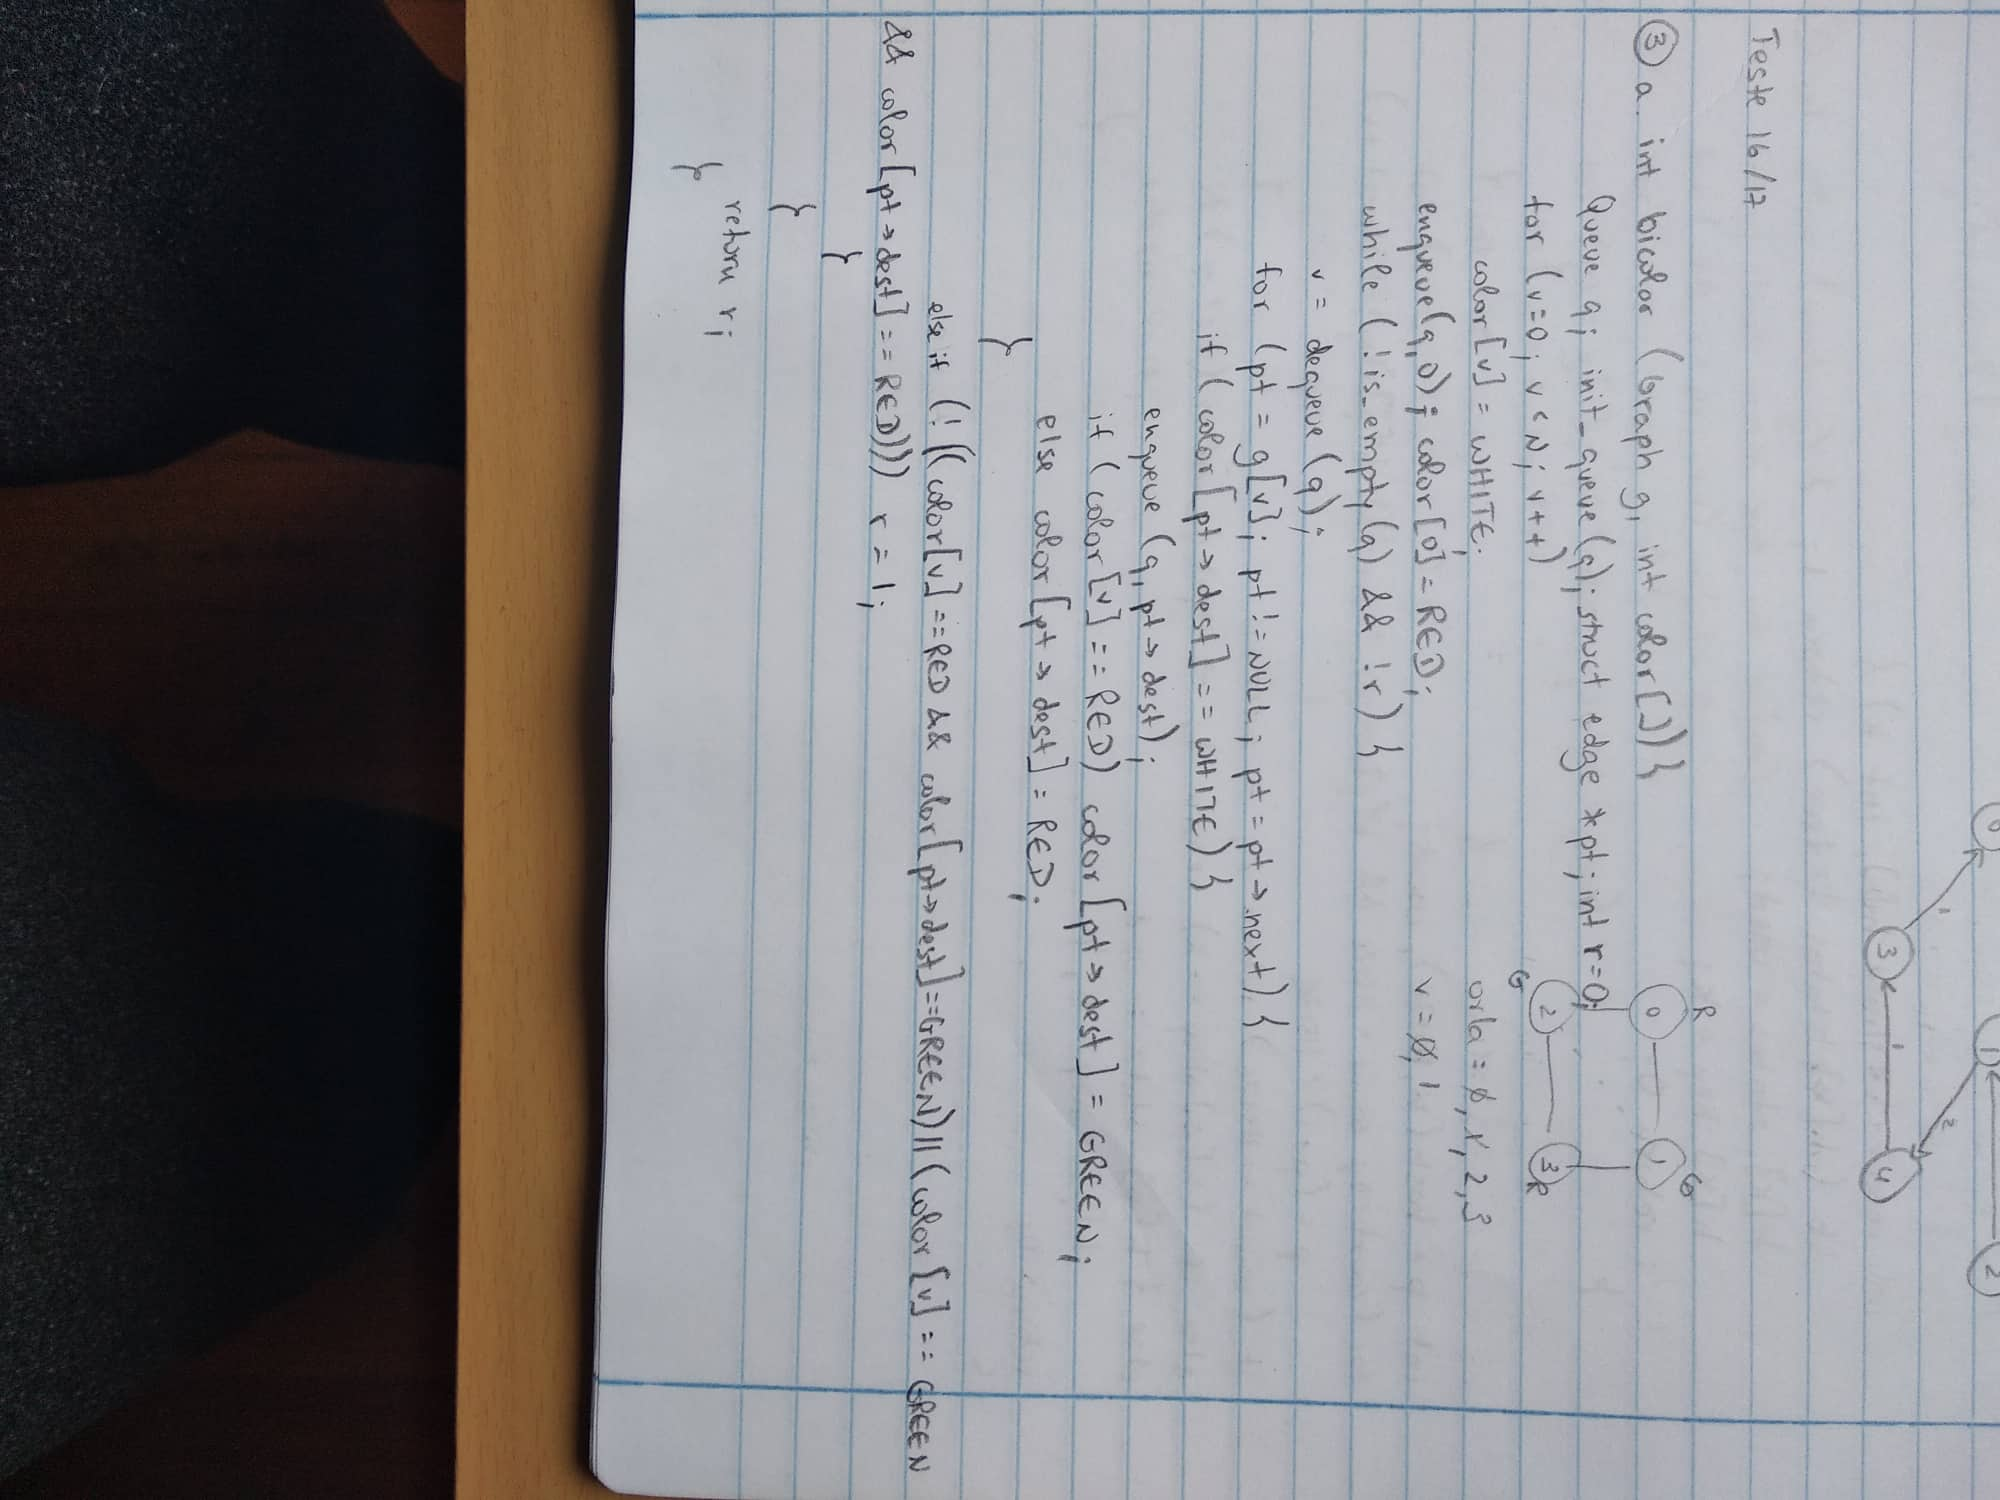 0
1
2
3
4
1
1
2
Teste 16/17
③ a. int bicolor (Graph g, int color[]){
Queue q; init_queue(q); struct edge *pt; int r=0;
for (v=0; v<N; v++)
color[v] = WHITE;
enqueue(q,0); color[0]=RED;
while (!is_empty(q) && !r) {
v = dequeue(q);
for (pt = g[v]; pt != NULL; pt = pt→next) {
if (color[pt→dest] == WHITE) {
enqueue (q, pt→dest);
if (color[v] == RED) color[pt→dest] = GREEN;
else color[pt→dest] = RED;
}
else if (!((color[v]==RED && color[pt→dest]==GREEN)||(color[v] == GREEN
&& color[pt→dest]==RED))) r = 1;
}
}
return r;
}
R
G
0
1
2
3
G
R
orla = 0, 1, 2, 3
v = 0, 1